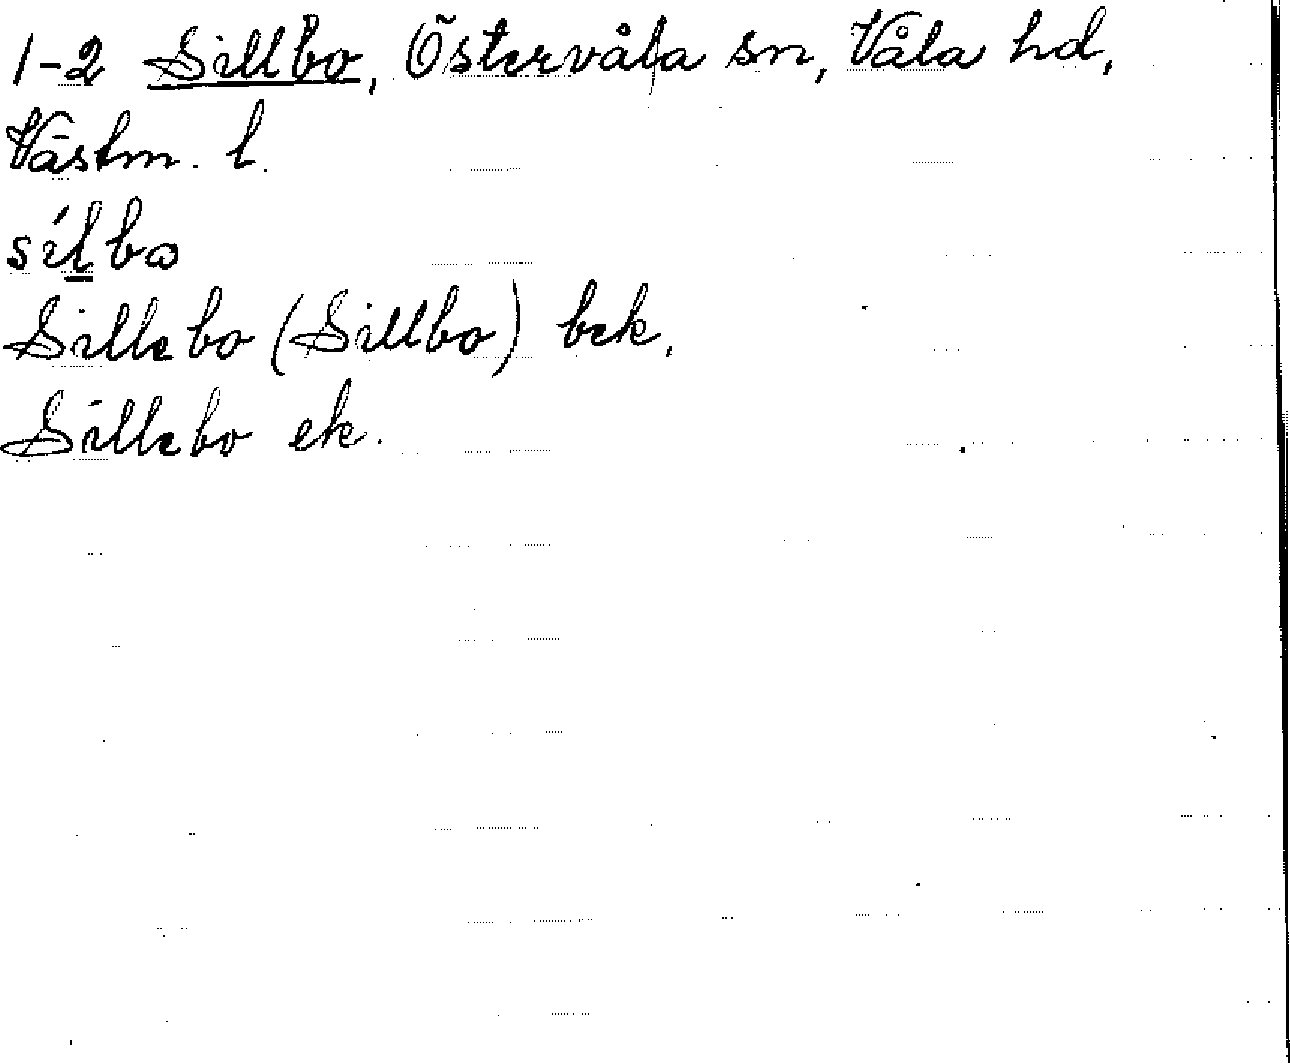 1-2 Sillbo, Östervåla sn, Våla hd,
Västm. l.
sílbo
Sillebo (Sillbo) bek,
Sillebo ek.